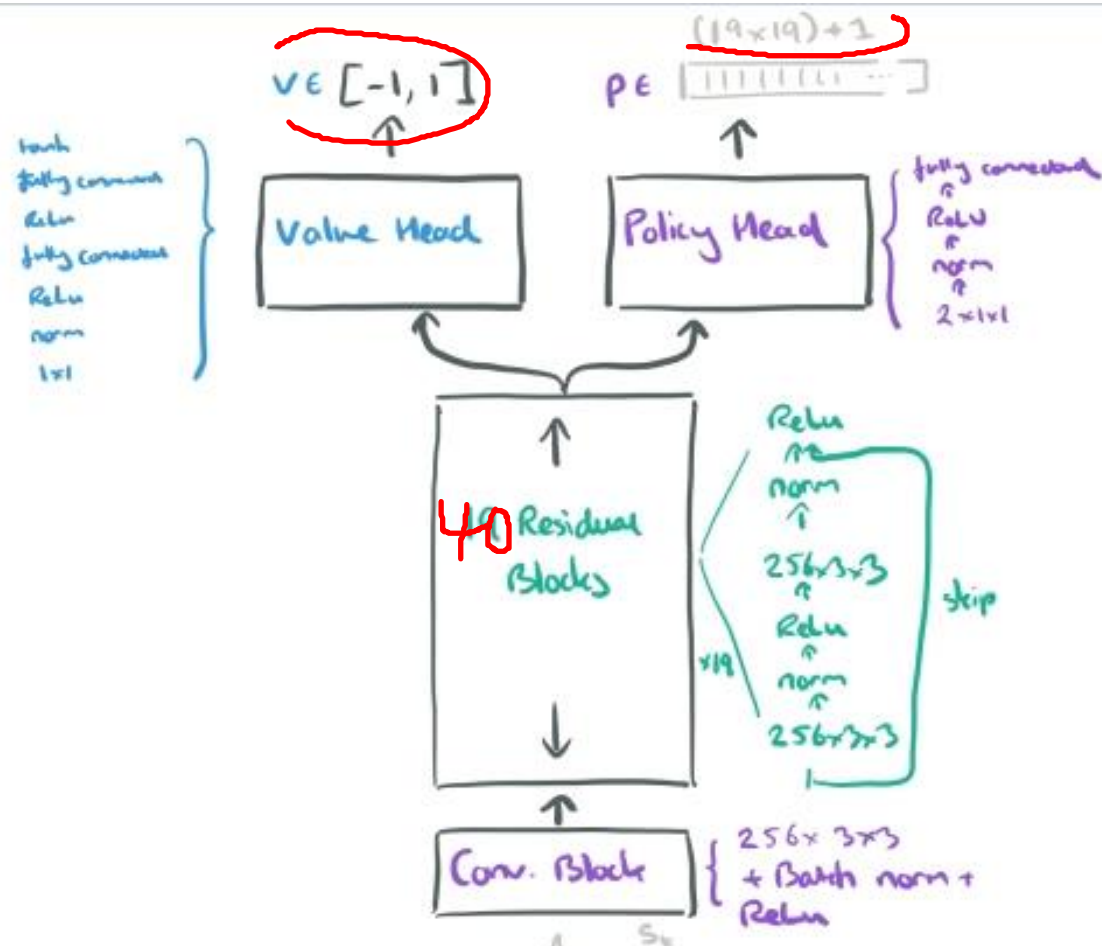 (19x19)+1
V∈ [-1, 1]
P∈ [ ... ]
tanh
fully connected
ReLu
fully connected
ReLu
norm
1x1
Value Head
Policy Head
fully connected
ReLU
norm
2x1x1
40 Residual
Blocks
x19
ReLu
norm
256x3x3
ReLu
norm
256x3x3
skip
Conv. Block
256x 3x3
+ Batch norm +
ReLu